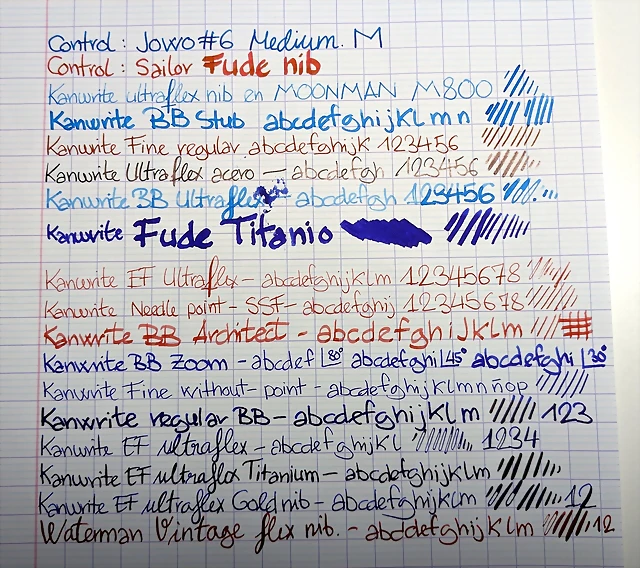 Control: Jowo#6 Medium. M
Control: Sailor Fude nib
Kanwrite ultraflex nib en MOONMAN M800
Kanwrite BB Stub abcdefghijklmn
Kanwrite Fine regular. abcdefghijk 123456
Kanwrite Ultraflex acero — abcdefgh 123456
Kanwrite BB Ultraflex — abcdefgh 123456
Kanwrite Fude Titanio
Kanwrite EF Ultraflex - abcdefghijklm 12345678
Kanwrite Needle point - SSF - abcdefghij 12345678
Kanwrite BB Architect - abcdefghijklm
Kanwrite BB Zoom - abcdef 80° abcdefghi 45° abcdefghi 30°
Kanwrite Fine without point - abcdefghijklmnñop
Kanwrite regular BB - abcdefghijklm 123
Kanwrite EF ultraflex - abcdefghijkl 1234
Kanwrite EF ultraflex Titanium - abcdefghijklm
Kanwrite EF ultraflex Gold nib - abcdefghijklm 12
Waterman Vintage flex nib. - abcdefghijklm 12